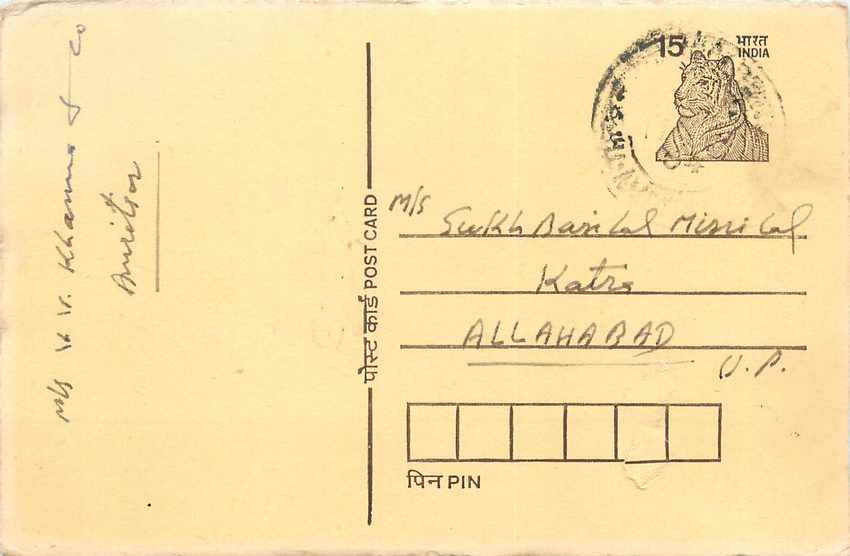 M/s V. V. Khanna & Co
Amritsar
पोस्ट कार्ड POST CARD
15
भारत
INDIA
M/s Sukh Basi Lal Misri Lal
Katra
ALLAHABAD
U.P.
पिन PIN